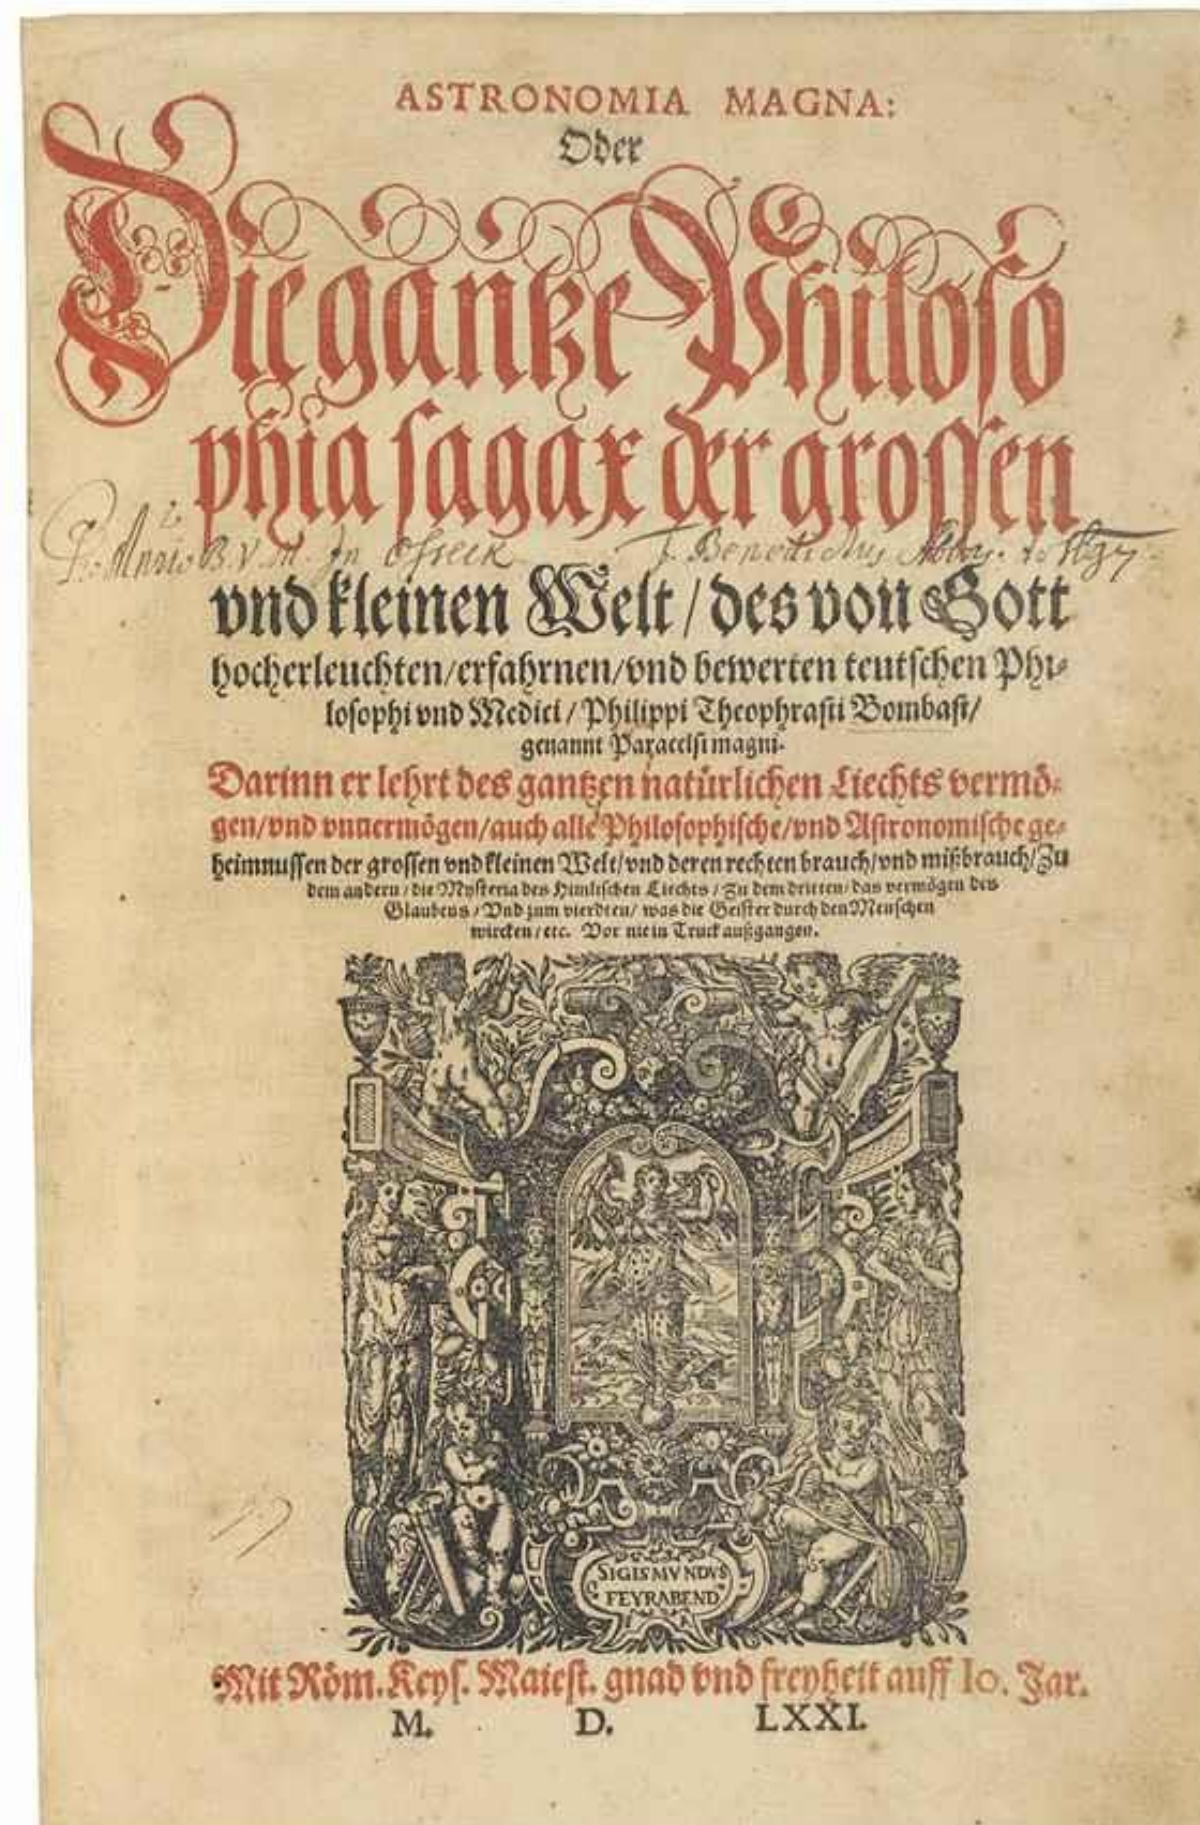 ASTRONOMIA MAGNA:
Oder
Die gantze Philoso
phia sagax der grossen
B. V. M. In
vnd kleinen Welt / des von Gott
hocherleuchten / erfahrnen / vnd bewerten teutschen Phi-
losophi vnd Medici / Philippi Theophrasti Bombast /
genannt Paracelsi magni.
Darinn er lehrt des gantzen natürlichen Liechts vermö-
gen / vnd vnuermögen / auch alle Philosophische / vnd Astronomische ge-
heimnussen der grossen vnd kleinen Welt / vnd deren rechten brauch / vnd mißbrauch / Zu
dem andern / die Mysteria des Himlischen Liechts / Zu dem dritten / das vermögen des
Glaubens / Vnd zum vierdten / was die Geister durch den Menschen
wircken / etc. Vor nie in Truck außgangen.
SIGISMVNDVS
FEYRABEND
Mit Röm. Keys. Maiest. gnad vnd freyheit auff 10. Jar.
M. D. LXXI.